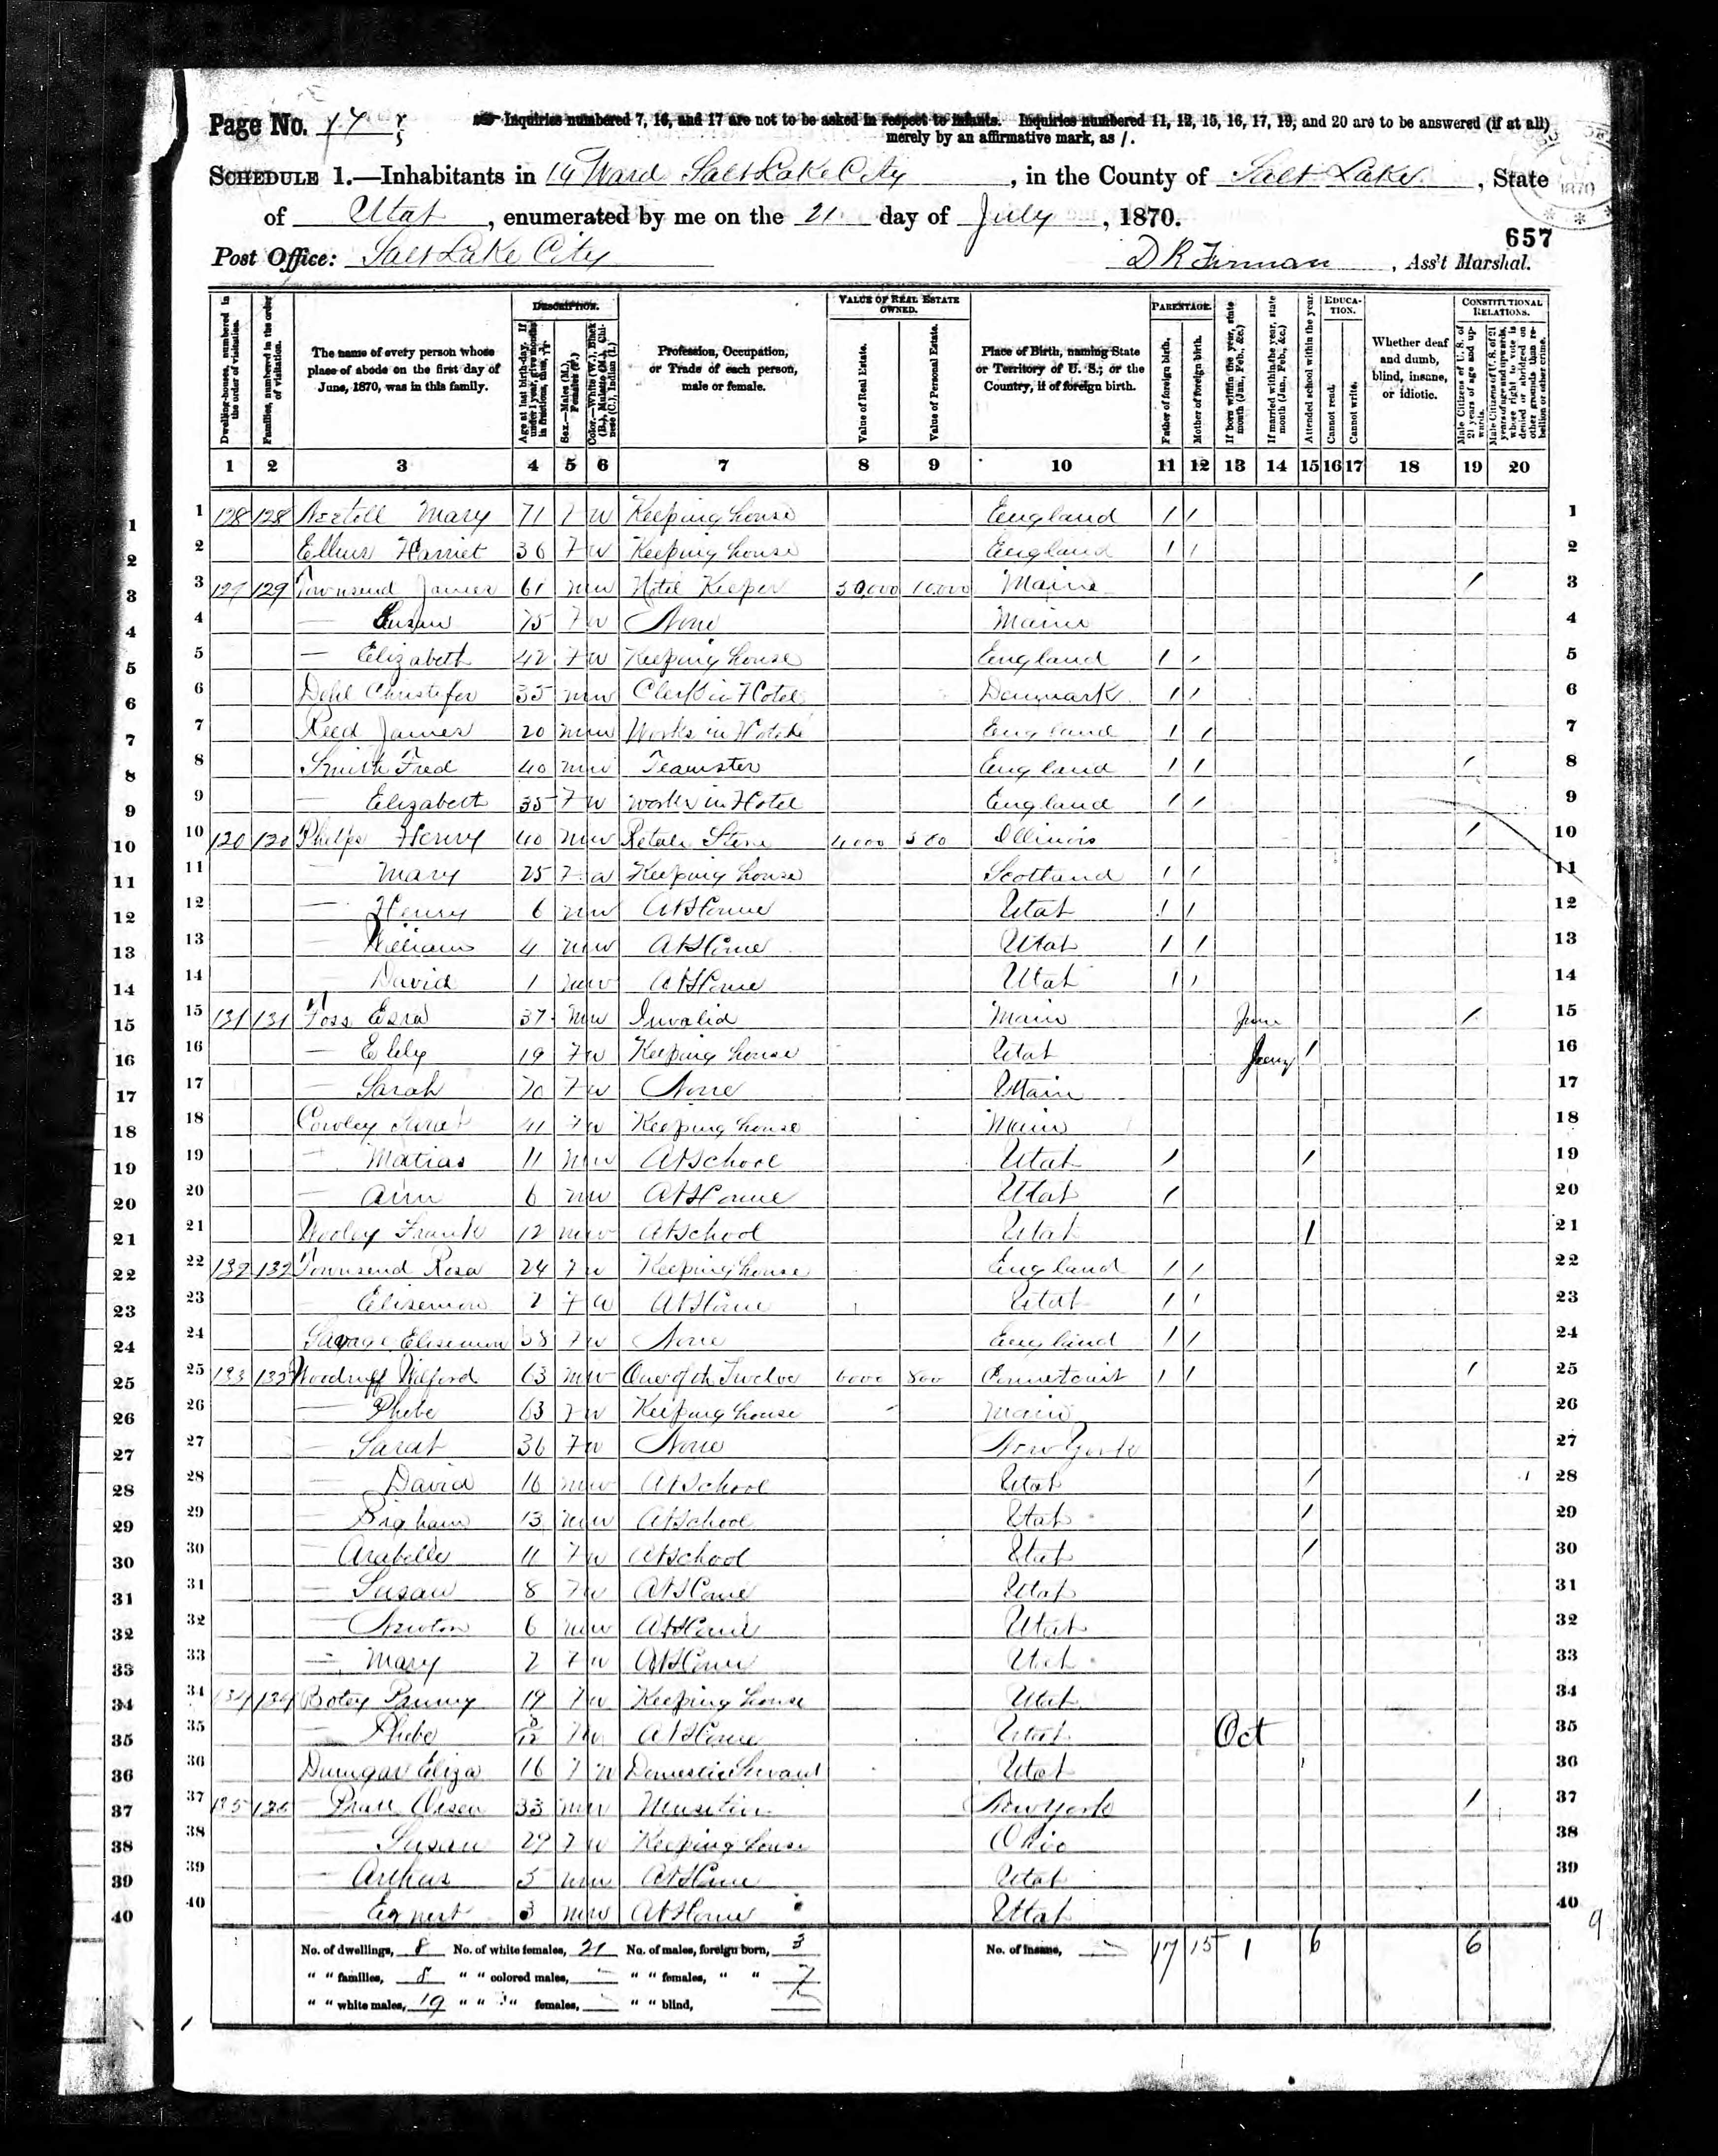 Page No. 17
Inquiries numbered 7, 16, and 17 are not to be asked in respect to infants. Inquiries numbered 11, 12, 15, 16, 17, 19, and 20 are to be answered (if at all)
merely by an affirmative mark, as /.
SCHEDULE 1.—Inhabitants in 14 Ward Salt Lake City, in the County of Salt Lake, State
of Utah, enumerated by me on the 21 day of July, 1870.
657
Post Office: Salt Lake City
D R Firman, Ass't Marshal.
Dwelling-houses, numbered in the order of visitation.
Families, numbered in the order of visitation.
The name of every person whose place of abode on the first day of June, 1870, was in this family.
DESCRIPTION.
Age at last birth-day. If under 1 year, give months in fractions, thus,
Sex.—Males (M.), Females (F.)
Color.—White (W.), Black (B.), Mulatto (M.), Chinese (C.), Indian (I.)
Profession, Occupation, or Trade of each person, male or female.
VALUE OF REAL ESTATE OWNED.
Value of Real Estate.
Value of Personal Estate.
Place of Birth, naming State or Territory of U. S.; or the Country, if of foreign birth.
PARENTAGE.
Father of foreign birth.
Mother of foreign birth.
If born within the year, state month (Jan., Feb., &c.)
If married within the year, state month (Jan., Feb., &c.)
Attended school within the year.
EDUCATION.
Cannot read.
Cannot write.
Whether deaf and dumb, blind, insane, or idiotic.
CONSTITUTIONAL RELATIONS.
Male Citizens of U. S. of 21 years of age and upwards.
Male Citizens of U. S. of 21 years of age and upwards, where right to vote is denied or abridged on other grounds than rebellion or other crime.
1 2 3 4 5 6 7 8 9 10 11 12 13 14 15 16 17 18 19 20
1 128 128 Mary 71 F W Keeping house England / / 1
2 Harriet 36 F W Keeping house England / / 2
3 129 129 Townsend James 61 M W Hotel Keeper 10,000 Maine / 3
4 — Susan 75 F W None Maine 4
5 — Elizabeth 42 F W Keeping house England / / 5
6 Dehl Christofer 35 M W Clerk in Hotel Denmark / / 6
7 Reed James 20 M W Works in Hotel England / / 7
8 Smith Fred 40 M W Teamster England / / / 8
9 — Elizabeth 35 F W works in Hotel England / / 9
10 Phelps Henry 40 M W Retale Store 4000 Illinois / 10
11 — Mary 25 F W Keeping house Scotland / / 11
12 — Henry 6 M W At Home Utah / / 12
13 — William 4 M W At Home Utah / / 13
14 — David 1 M W At Home Utah / / 14
15 131 131 Foss Esra 37 M W Invalid Main June / 15
16 — 19 F W Keeping house Utah / 16
17 — Sarah 70 F W None Main 17
18 Cowley 41 F W Keeping house Main 18
19 — Matias 11 M W At School Utah / / 19
20 — Ann 6 M W At Home Utah / 20
21 Wooley Frank 12 M W At School Utah / 21
22 132 132 Townsend Rosa 24 F W Keeping house England / / 22
23 — F W At Home Utah / / 23
24 F W None England / / 24
25 133 133 Woodruff Wilford 63 M W One of th Twelve 6000 800 / / / 25
26 — Phebe 63 F W Keeping house Main 26
27 — Sarah 36 F W None New York 27
28 — David 16 M W At School Utah / 28
29 — Brigham 13 M W At School Utah / 29
30 — Arabelle 11 F W At School Utah / 30
31 — Susan 8 F W At Home Utah 31
32 — Newton 6 M W At Home Utah 32
33 — Mary 2 F W At Home Utah 33
34 134 134 19 F W Keeping house Utah 34
35 — Phebe F W At Home Utah Oct 35
36 Eliza 16 F W Domestic Servant Utah / 36
37 135 M W New York / 37
38 — Susan 29 F W Keeping house Ohio 38
39 — Arthur 5 M W At Home Utah 39
40 — 3 M W At Home Utah 40
No. of dwellings, 8 No. of white females, 21 No. of males, foreign born, 3 No. of insane, 17 15 1 6 6
" " families, 8 " " colored males, " " females, " " 7
" " white males, 19 " " " females, " " blind,
9